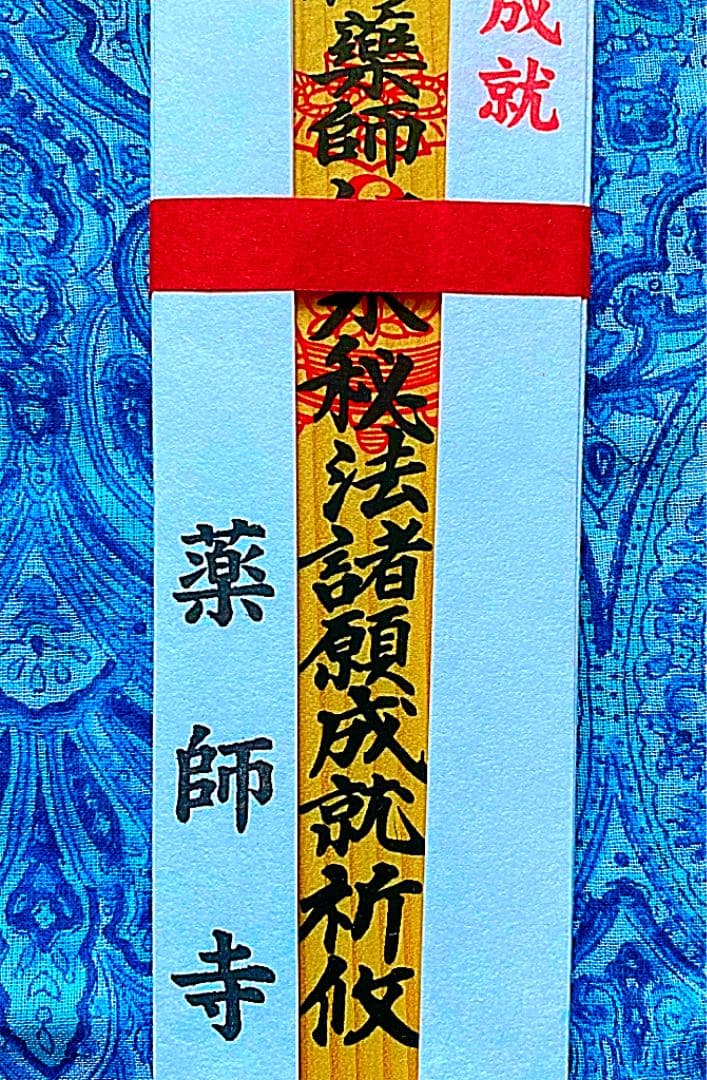 成就
藥師秘法諸願成就祈攸
薬師寺